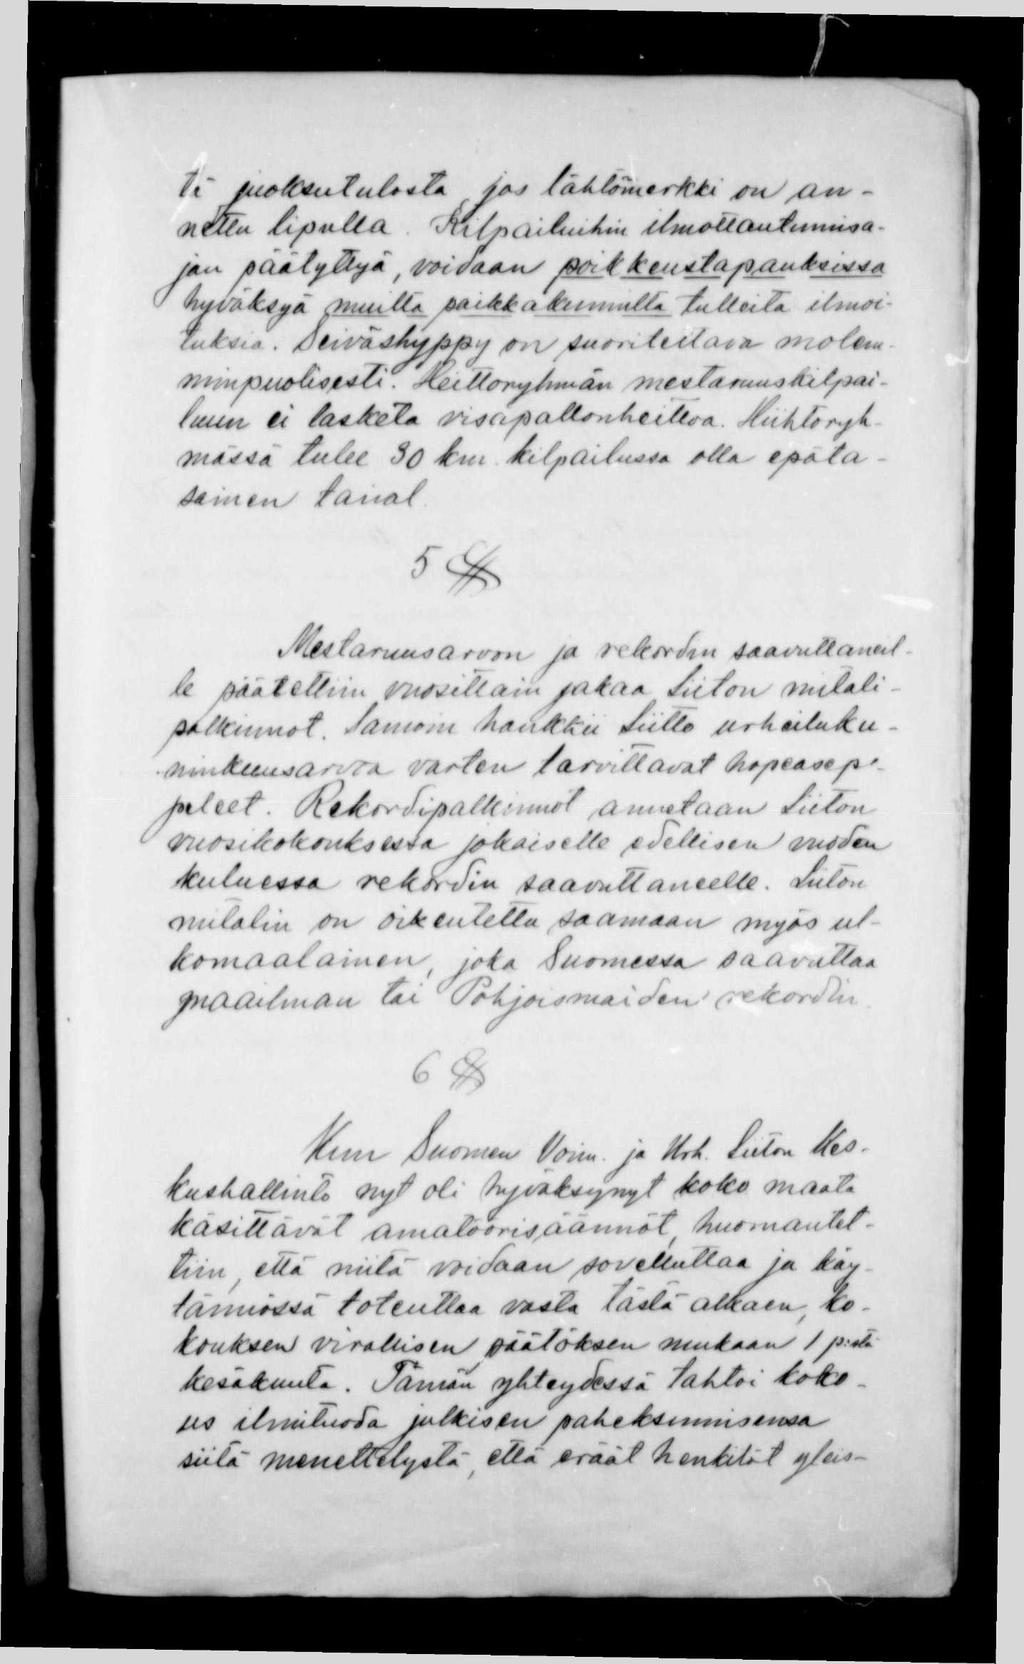 ti juoksutulosta, jos lähtömerkki on an-
nettu lipulla. Kilpailuihin ilmottautumisa-
jan päätyttyä, voidaan poikkeustapauksissa
hyväksyä muilta paikkakunnilta tulleita ilmoi-
tuksia. Seiväshyppy on suoritettava molem-
minpuolisesti. Heittoryhmän mestaruuskilpai-
luun ei lasketa visapallonheittoa. Hiihtoryh-
mässä tulee 30 km. kilpailussa olla epäta-
sainen taival.
5 §
Mestaruusarvon ja rekordin saavuttaneil-
le päätettiin vuosittain jakaa Liiton mitali-
palkinnot. Samoin hankkii Liitto urheiluku-
ninkuusarvoa varten tarvittavat hopeasep-
peleet. Rekordipalkinnot annetaan Liiton
vuosikokouksessa jokaiselle edellisen vuoden
kuluessa rekordin saavuttaneelle. Liiton
mitalin on oikeutettu saamaan myös ul-
komaalainen, joka Suomessa saavuttaa
maailman tai Pohjoismaiden rekordin.
6 §
Kun Suomen Voim. ja Urh. Liiton Kes-
kushallinto nyt oli hyväksynyt koko maata
käsittävät amatöörisäännöt, huomautet-
tiin, että niitä voidaan sovelluttaa ja käy-
tännössä toteuttaa vasta tästä alkaen, ko-
kouksen virallisen päätöksen mukaan 1 p:stä
kesäkuuta. Tämän yhteydessä tahtoi koko-
us ilmituoda julkisen paheksumisensa
siitä menettelystä, että eräät henkilöt yleis-